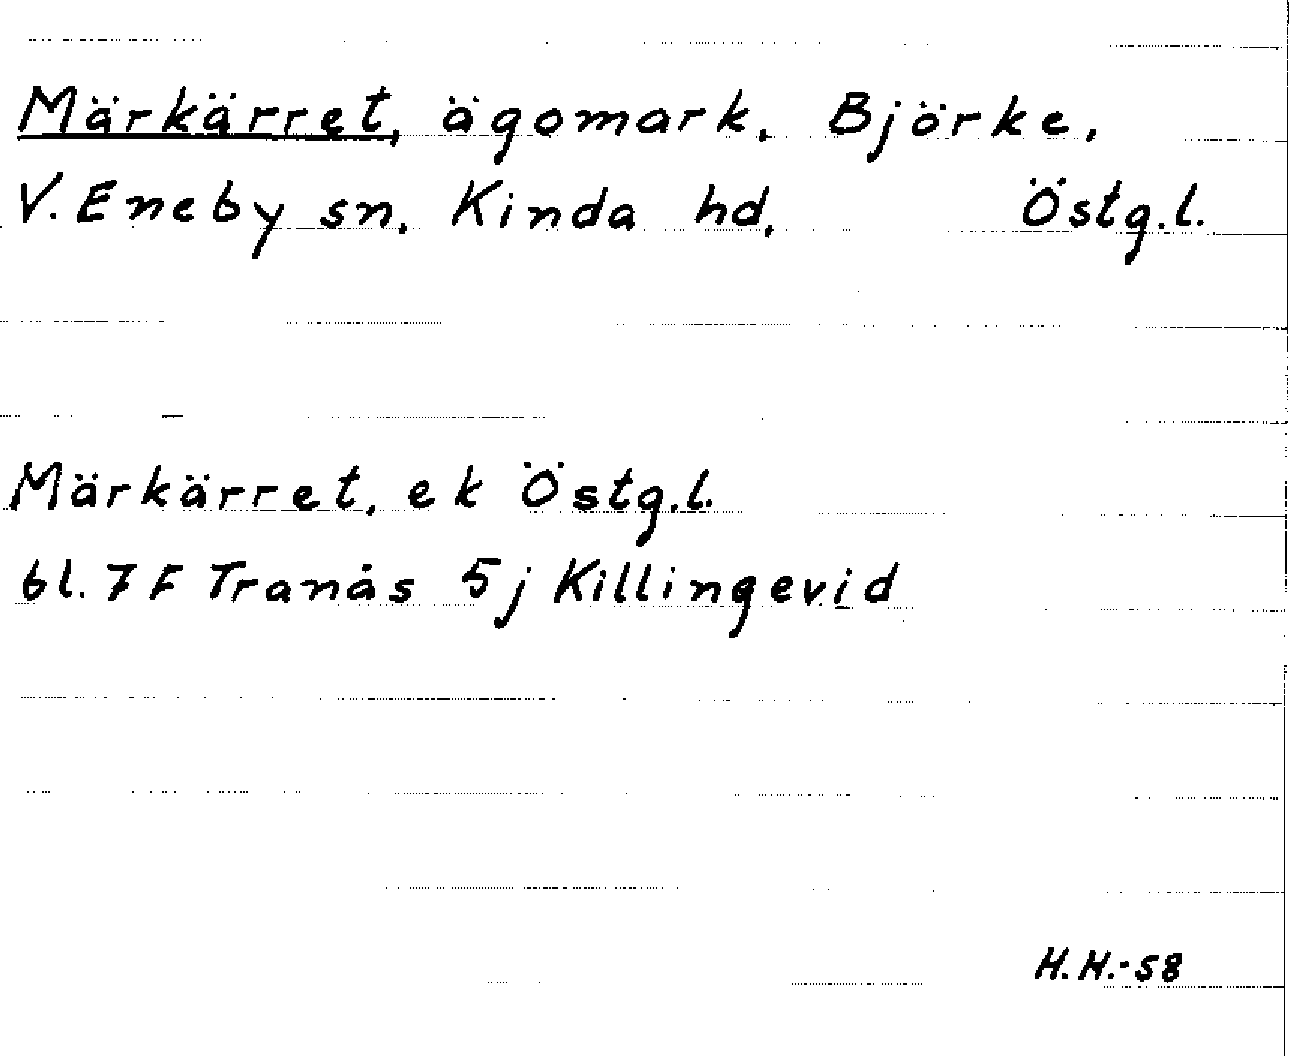 Märkärret, ägomark, Björke,
V. Eneby sn, Kinda hd, Östg.l.
Märkärret, ek Östg.l.
bl. 7 F Tranås 5j Killingevid
H.H.-58